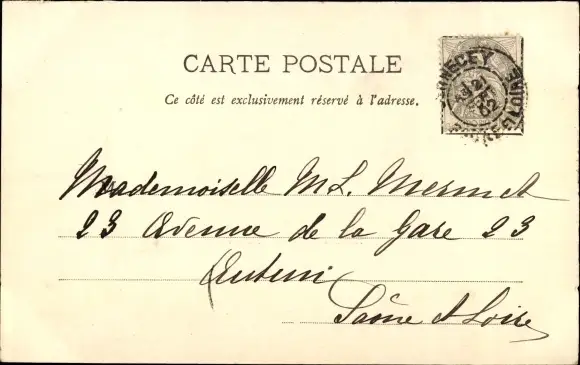 CARTE POSTALE
Ce côté est exclusivement réservé à l'adresse.
Mademoiselle M L. Mermet
23 Avenue de la Gare 23
Autun
Saône et Loire